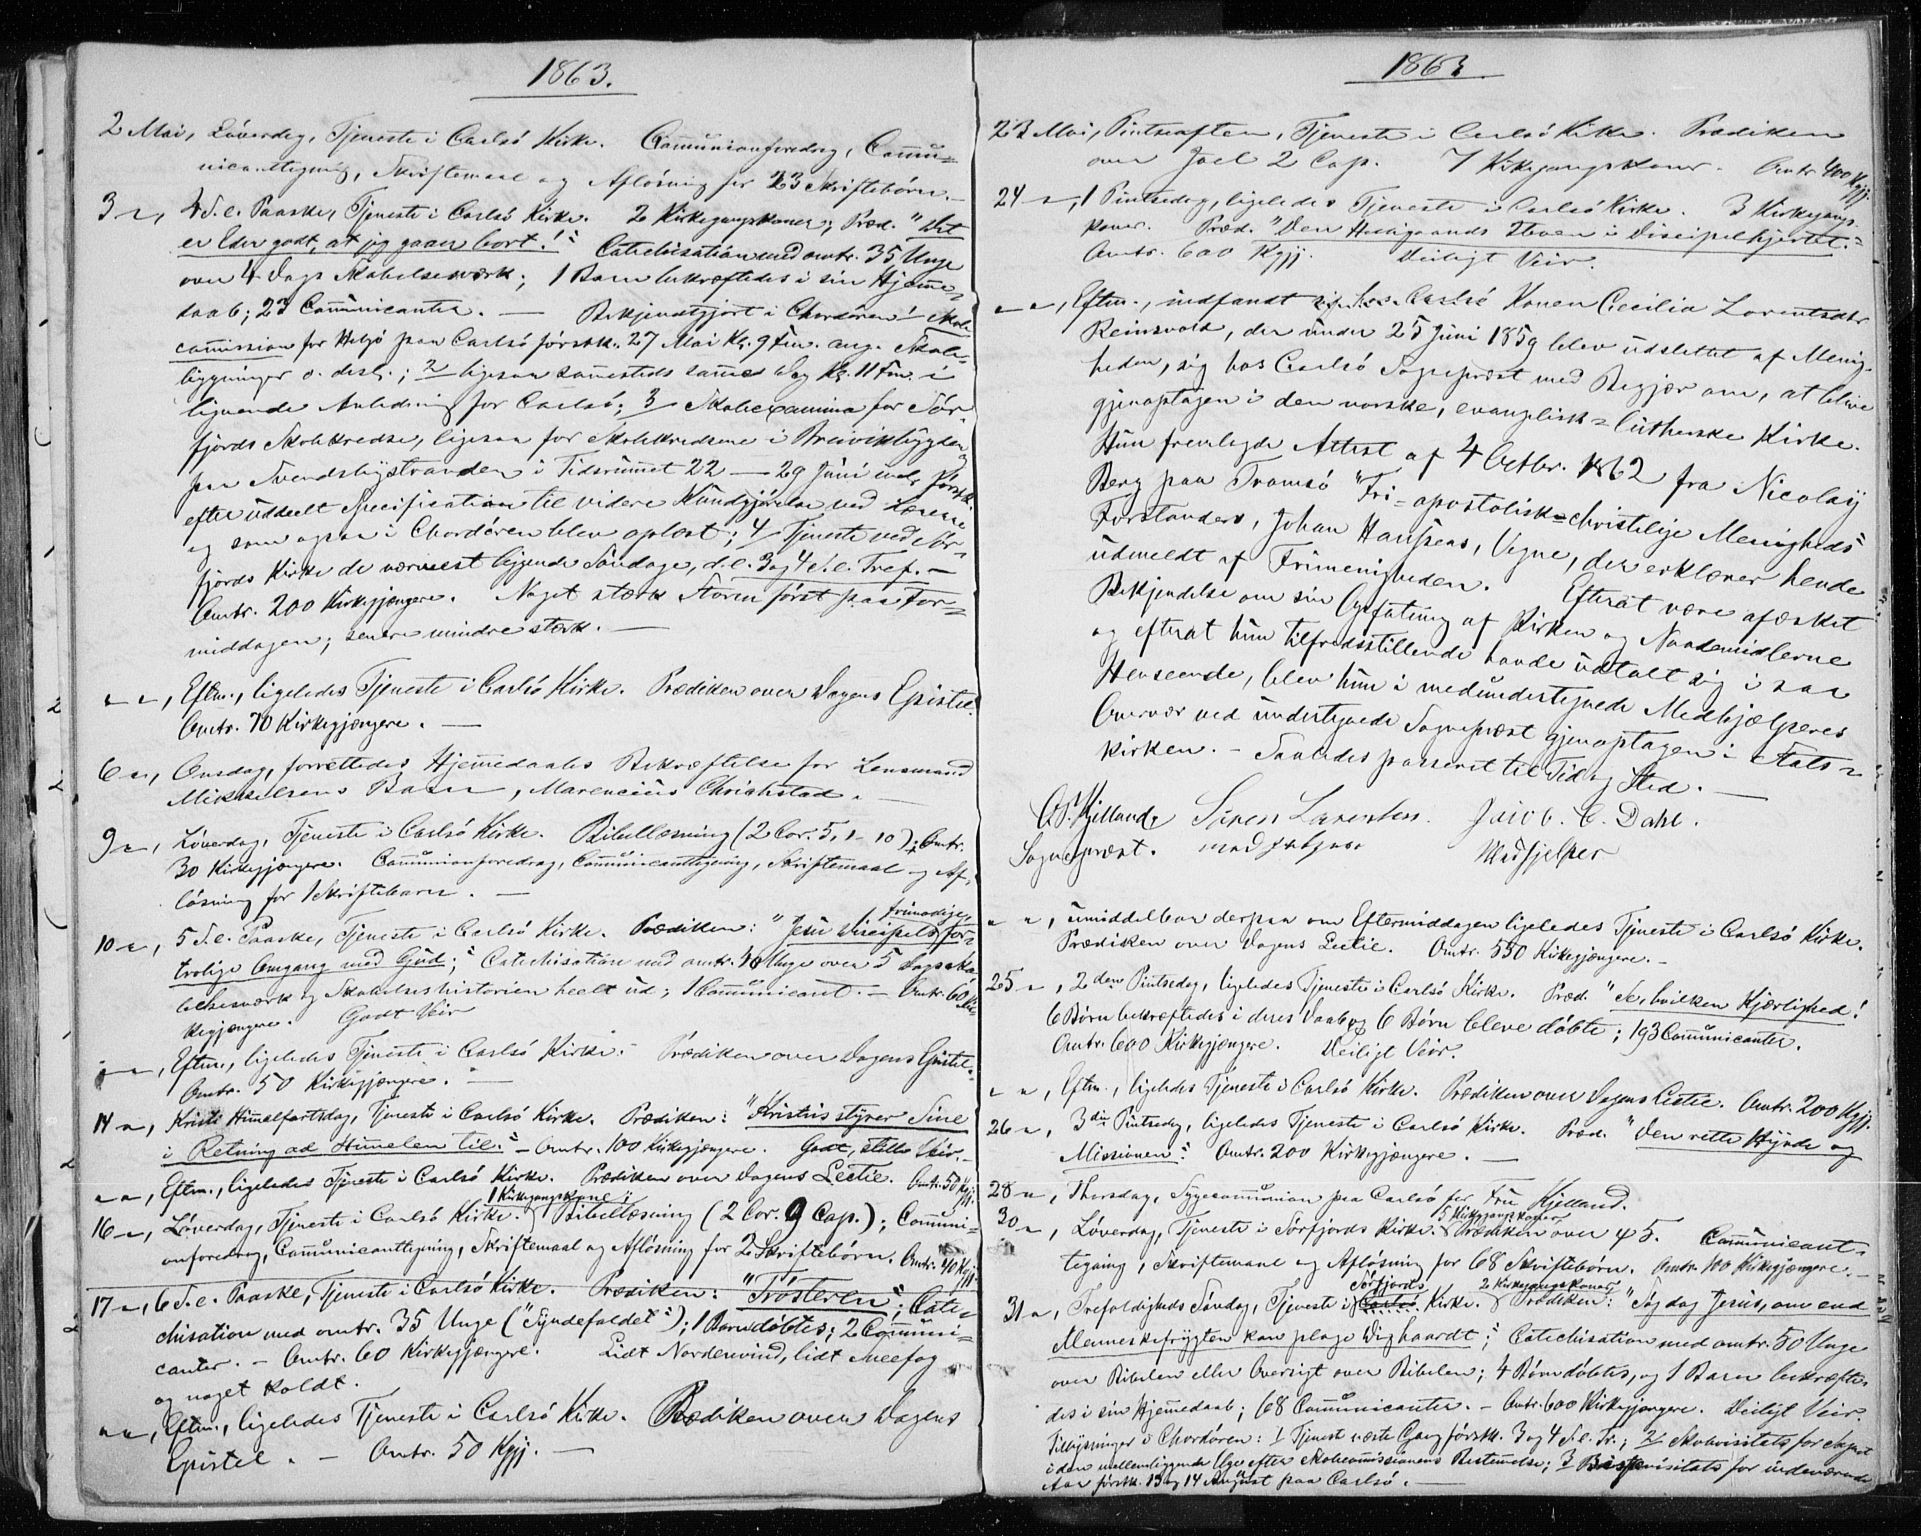 1863.
2 Mai, Löverdag, Tjeneste i Carlsö Kirke. Communionforedrag, Commu=
nicanttegning, Skriftemaal og Aflösning for 23 Skriftebörn. —
3 —, 4 S. e. Paaske, Tjeneste i Carlsö Kirke. 2 Kirkegangskoner; Præd. "Det
er Eder godt, at jeg gaaer bort."; Catechisation med omtr. 35 Unge
over 4 Dags Skabelsesværk; 1 Barn bekræftedes i sin Hjemme=
daab; 23 Communicanter. — Bekjendtgjort i Chordören: 1 Skole
commission for Helgö paa Carlsö förstk. 27 Mai Kl. 9 Fm. ang. Skole=
bygninger o. desl.; 2 ligesaa sammesteds samme Dag Kl. 11 Fm. i
lignende Anledning for Carlsö; 3 Skoleexamina for Sör=
fjords Skolekredse, ligesaa for Skolekredsene i Breivikbygden og
paa Svendsbystranden i Tidsrummet 22 — 29 Juni förstk.
efter uddeelt Specification til videre Kundgjörelse ved Lærerne
og som ogsaa i Chordören blev oplæst; 4 Tjeneste ved Sör=
fjords Kirke de nærmest liggende Söndage, d. e. 3 og 4 S. e. Tref. —
Omtr. 200 Kirkegjængere. Noget stærk Storm först paa For=
middagen; senere mindre stærk. —
— —, Eftm., ligeledes Tjeneste i Carlsö Kirke. Prædiken over Dagens Epistel.
Omtr. 70 Kirkegjængere. —
6 —, Onsdag, forrettedes Hjemmedaabs Bekræftelse for Lensmand
Mikkelsens Barn, Marencius Christstad. —
9 —, Löverdag, Tjeneste i Carlsö Kirke. Bibellæsning (2 Cor. 5, 1 - 10); Omtr.
30 Kirkegjængere. Communionforedrag, Communicanttegning, Skriftemaal og Af=
lösning for 1 Skriftebarn. —
frimodige,
10 —, 5 S. e. Paaske, Tjeneste i Carlsö Kirke. Prædiken: "Jesu Discipels for=
trolige Omgang med Gud"; Catechisation med omtr. 40 Unge over 5 Dags Ska=
belsesværk og Skabelseshistorien heelt ud; 1 Communicant. — Omtr. 60 Kir=
kegjængere. Godt Veir
— —, Eftm., ligeledes Tjeneste i Carlsö Kirke. Prædiken over Dagens Epistel.
Omtr. 50 Kirkegjængere. —
14 —, Kristi Himmelfartsdag, Tjeneste i Carlsö Kirke. Prædiken: "Kristus styrer Sine
i Retning ad Himmelen til." — Omtr. 100 Kirkegjængere. Godt, stille Veir. —
— —, Eftm., ligeledes Tjeneste i Carlsö Kirke. Prædiken over Dagens Lectie. Omtr. 50 Kgjj.
1 Kirkegangskone;
16 —, Löverdag, Tjeneste i Carlsö Kirke. Bibellæsning (2 Cor. 9 Cap.); Communi=
onforedrag, Communicanttegning, Skriftemaal og Aflösning for 2 Skriftebörn. Omtr. 40 Kgjj.
17 —, 6 S. e. Paaske, Tjeneste i Carlsö Kirke. Prædiken: "Trösteren"; Cate=
chisation med omtr. 35 Unge ("Syndefaldet"); 1 Barn döbtes; 2 Communi=
canter. — Omtr. 60 Kirkegjængere. Lidt Nordenvind, lidt Sneefog
og noget koldt.
— —, Eftm., ligeledes Tjeneste i Carlsö Kirke. Prædiken over Dagens
Epistel. — Omtr. 50 Kgjj. —
1863.
23 Mai, Pintseaften, Tjeneste i Carlsö Kirke. Prædiken
over Joel 2 Cap. 7 Kirkegangskoner. Omtr. 400 Kgjj.
24 —, 1 Pintsedag, ligeledes Tjeneste i Carlsö Kirke. 3 Kirkegangs=
koner. Præd. "Den Helligaands Stemme i Discipelhjertet."
Omtr. 600 Kgjj. Deiligt Veir.
— —, Eftm., indfandt sig hos Carlsö Konen Cecilia Lorentsdtr
Reinsvold, der under 25 Juni 1859 blev udslettet af Menig=
heden, sig hos Carlsö Sognepræst med Begjær om, at blive
gjenoptagen i den norske, evangelisk=lutherske Kirke.
Hun fremlagde Attest af 4 Octbr. 1862 fra Nicolay
Berg paa Tromsö "Fri=apostolisk=christelige Menigheds"
Forstanders, Johan Hansens, Vegne, der erklærer hende
udmeldt af Frimenigheden. Efterat være afæsket
Bekjendelse om sin Opfatning af Kirken og Naademidlerne
og efterat hun tilfredsstillende havde udtalt sig i saa
Henseende, blev hun i medundertegnede Medhjælperes
Overvær ved undertegnede Sognepræst gjenoptagen i Stats=
kirken. — Saaledes passeret til Tid og Sted. —
Kjelland Sören Larentsen. Jacob. C. Dahl.
Sognepræst. Medhjelper
— —, umiddelbar derpaa om Eftermiddagen ligeledes Tjeneste i Carlsö Kirke.
Prædiken over Dagens Lectie. Omtr. 550 Kirkegjængere. —
25 —, 2den Pintsedag, ligeledes Tjeneste i Carlsö Kirke. Præd. "Se, hvilken Kjærlighed!
6 Börn bekræftedes i deres Daab og 6 Börn bleve döbte; 193 Communicanter.
Omtr. 600 Kirkegjængere. Deiligt Veir.
— —, Eftm., ligeledes Tjeneste i Carlsö Kirke. Prædiken over Dagens Lectie. Omtr. 200 Kgjj.
26 —, 3die Pintsedag, ligeledes Tjeneste i Carlsö Kirke. Præd. "Den rette Hyrde og
Missionen." Omtr. 200 Kirkegjængere. —
28 —, Thorsdag, Sygecommunion paa Carlsö for Fru Kjelland.
5 Kirkegangskoner
30 —, Löverdag, Tjeneste i Sörfjords Kirke. Prædiken over ψ 5. Communicant=
tegning, Skriftemaal og Aflösning for 68 Skriftebörn. Omtr. 100 Kirkegjængere. —
Sörfjords 2 Kirkegangskoner
31 —, Trefoldigheds Söndag, Tjeneste i Carlsö Kirke. Prædiken: "Søg dog Jesus, om end
Menneskefrygten kan plage Dig haardt"; Catechisation med omtr. 50 Unge
over Bibelen eller Oversigt over Bibelen; 4 Börn döbtes, og 1 Barn bekræfte=
des i sin Hjemmedaab; 68 Communicanter. — Omtr. 600 Kirkegjængere. Deiligt Veir.
Tillysninger i Chordören: 1 Tjeneste næste Gang förstk. 3 og 4 S. e. Tr.; 2 Skolevisitats for Sognet
i den mellemliggende Uge efter Skolecommissionens Bestemmelse; 3 Bispevisitats for indeværende
Aar förstk. 13 og 14 August paa Carlsö. —